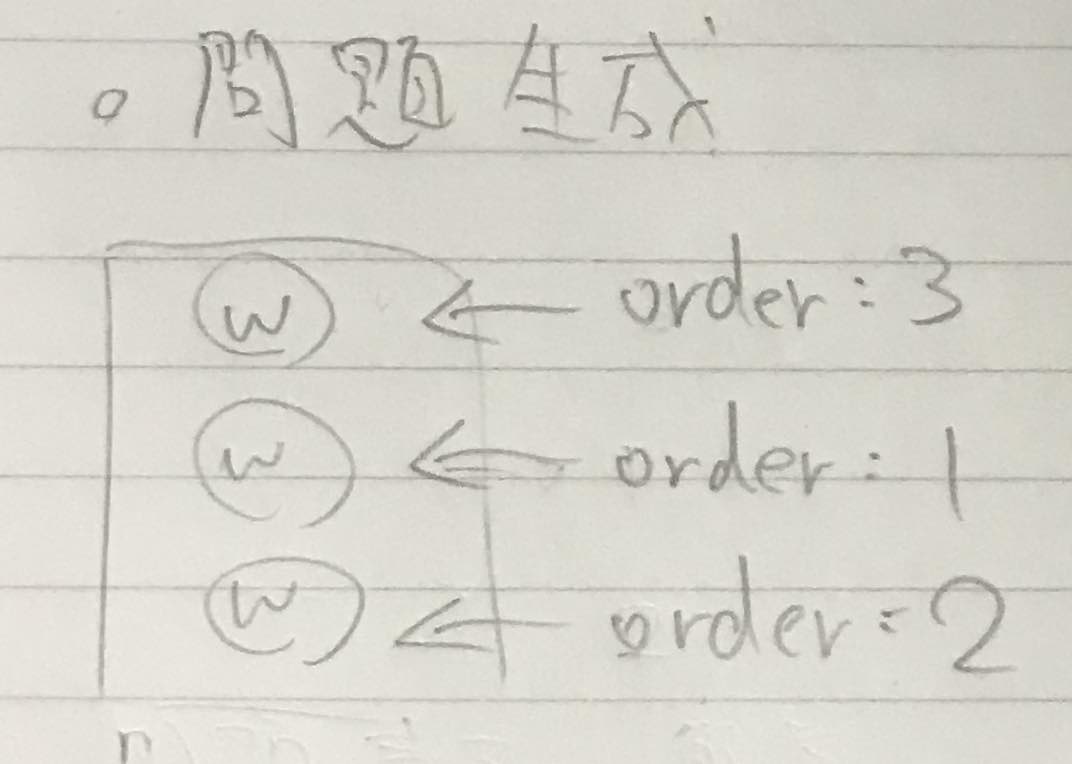 。問題生成
w ← order : 3
w ← order : 1
w ← order : 2